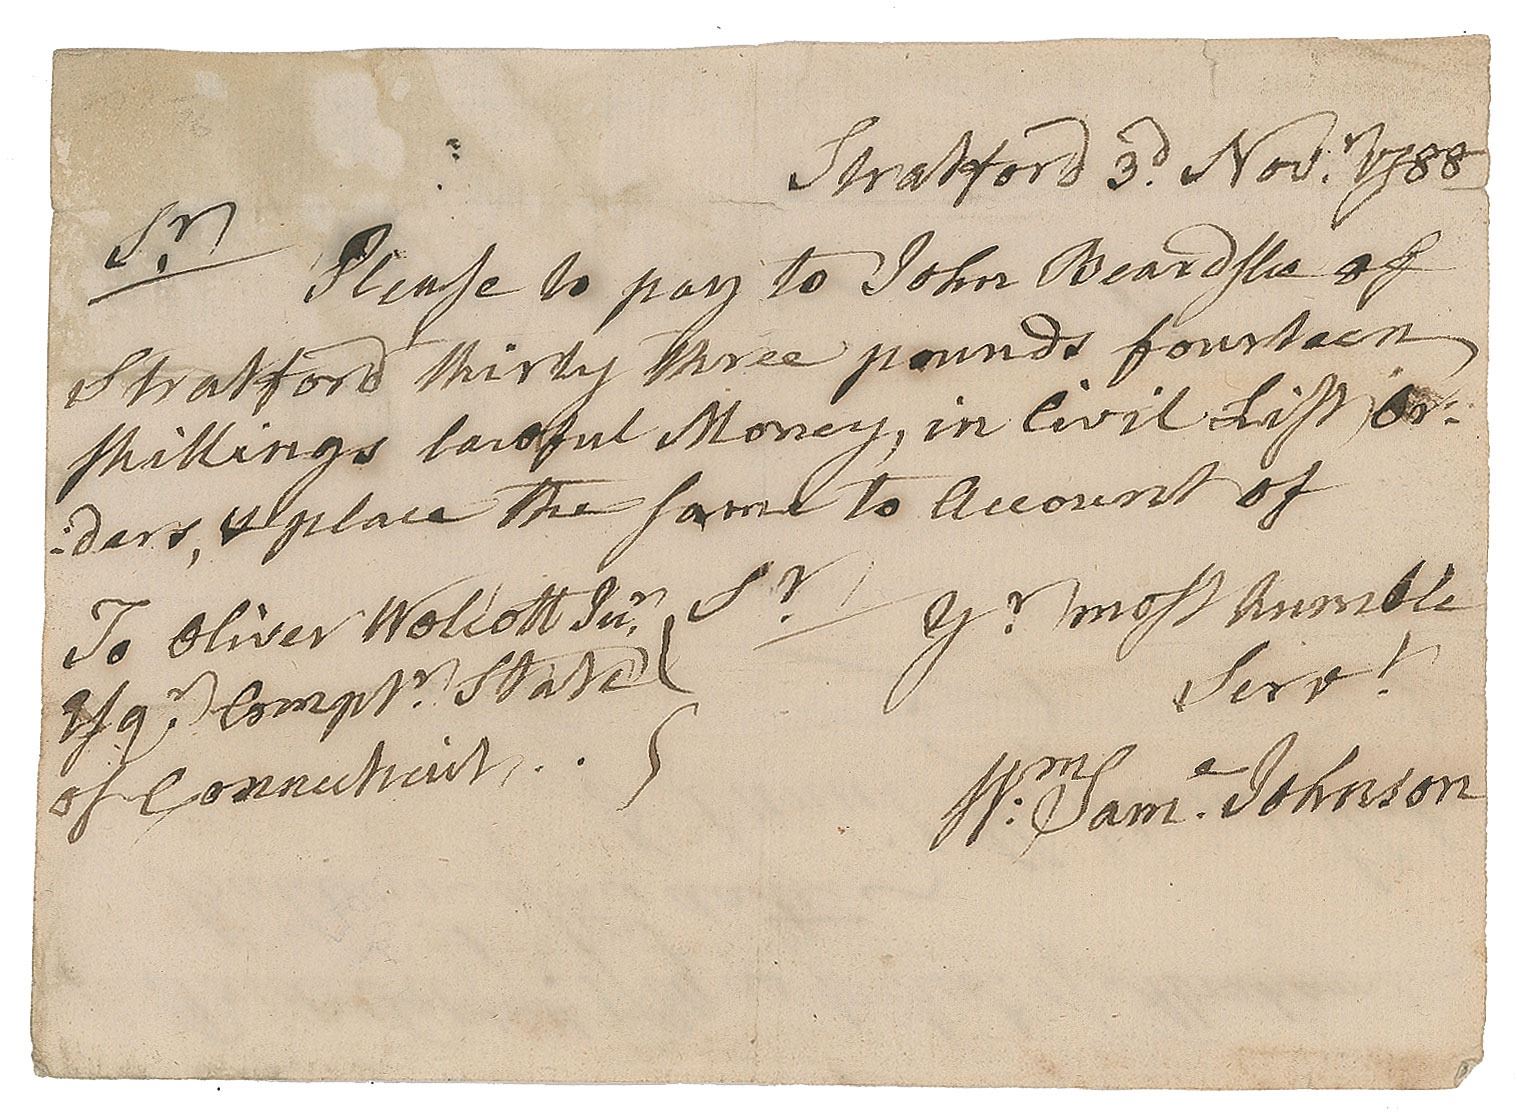 Stratford 3d. Novr. 1788
Sr.
Please to pay to John Beardslee of
Stratford thirty three pounds fourteen
shillings lawful Money, in Civil List Or-
:ders, & place the same to Account of
Sr. Yr. most humble
Servt.
Wm. Saml. Johnson
To Oliver Wolcott Junr.
Esqr. Comptr. State
of Connecticut, . .